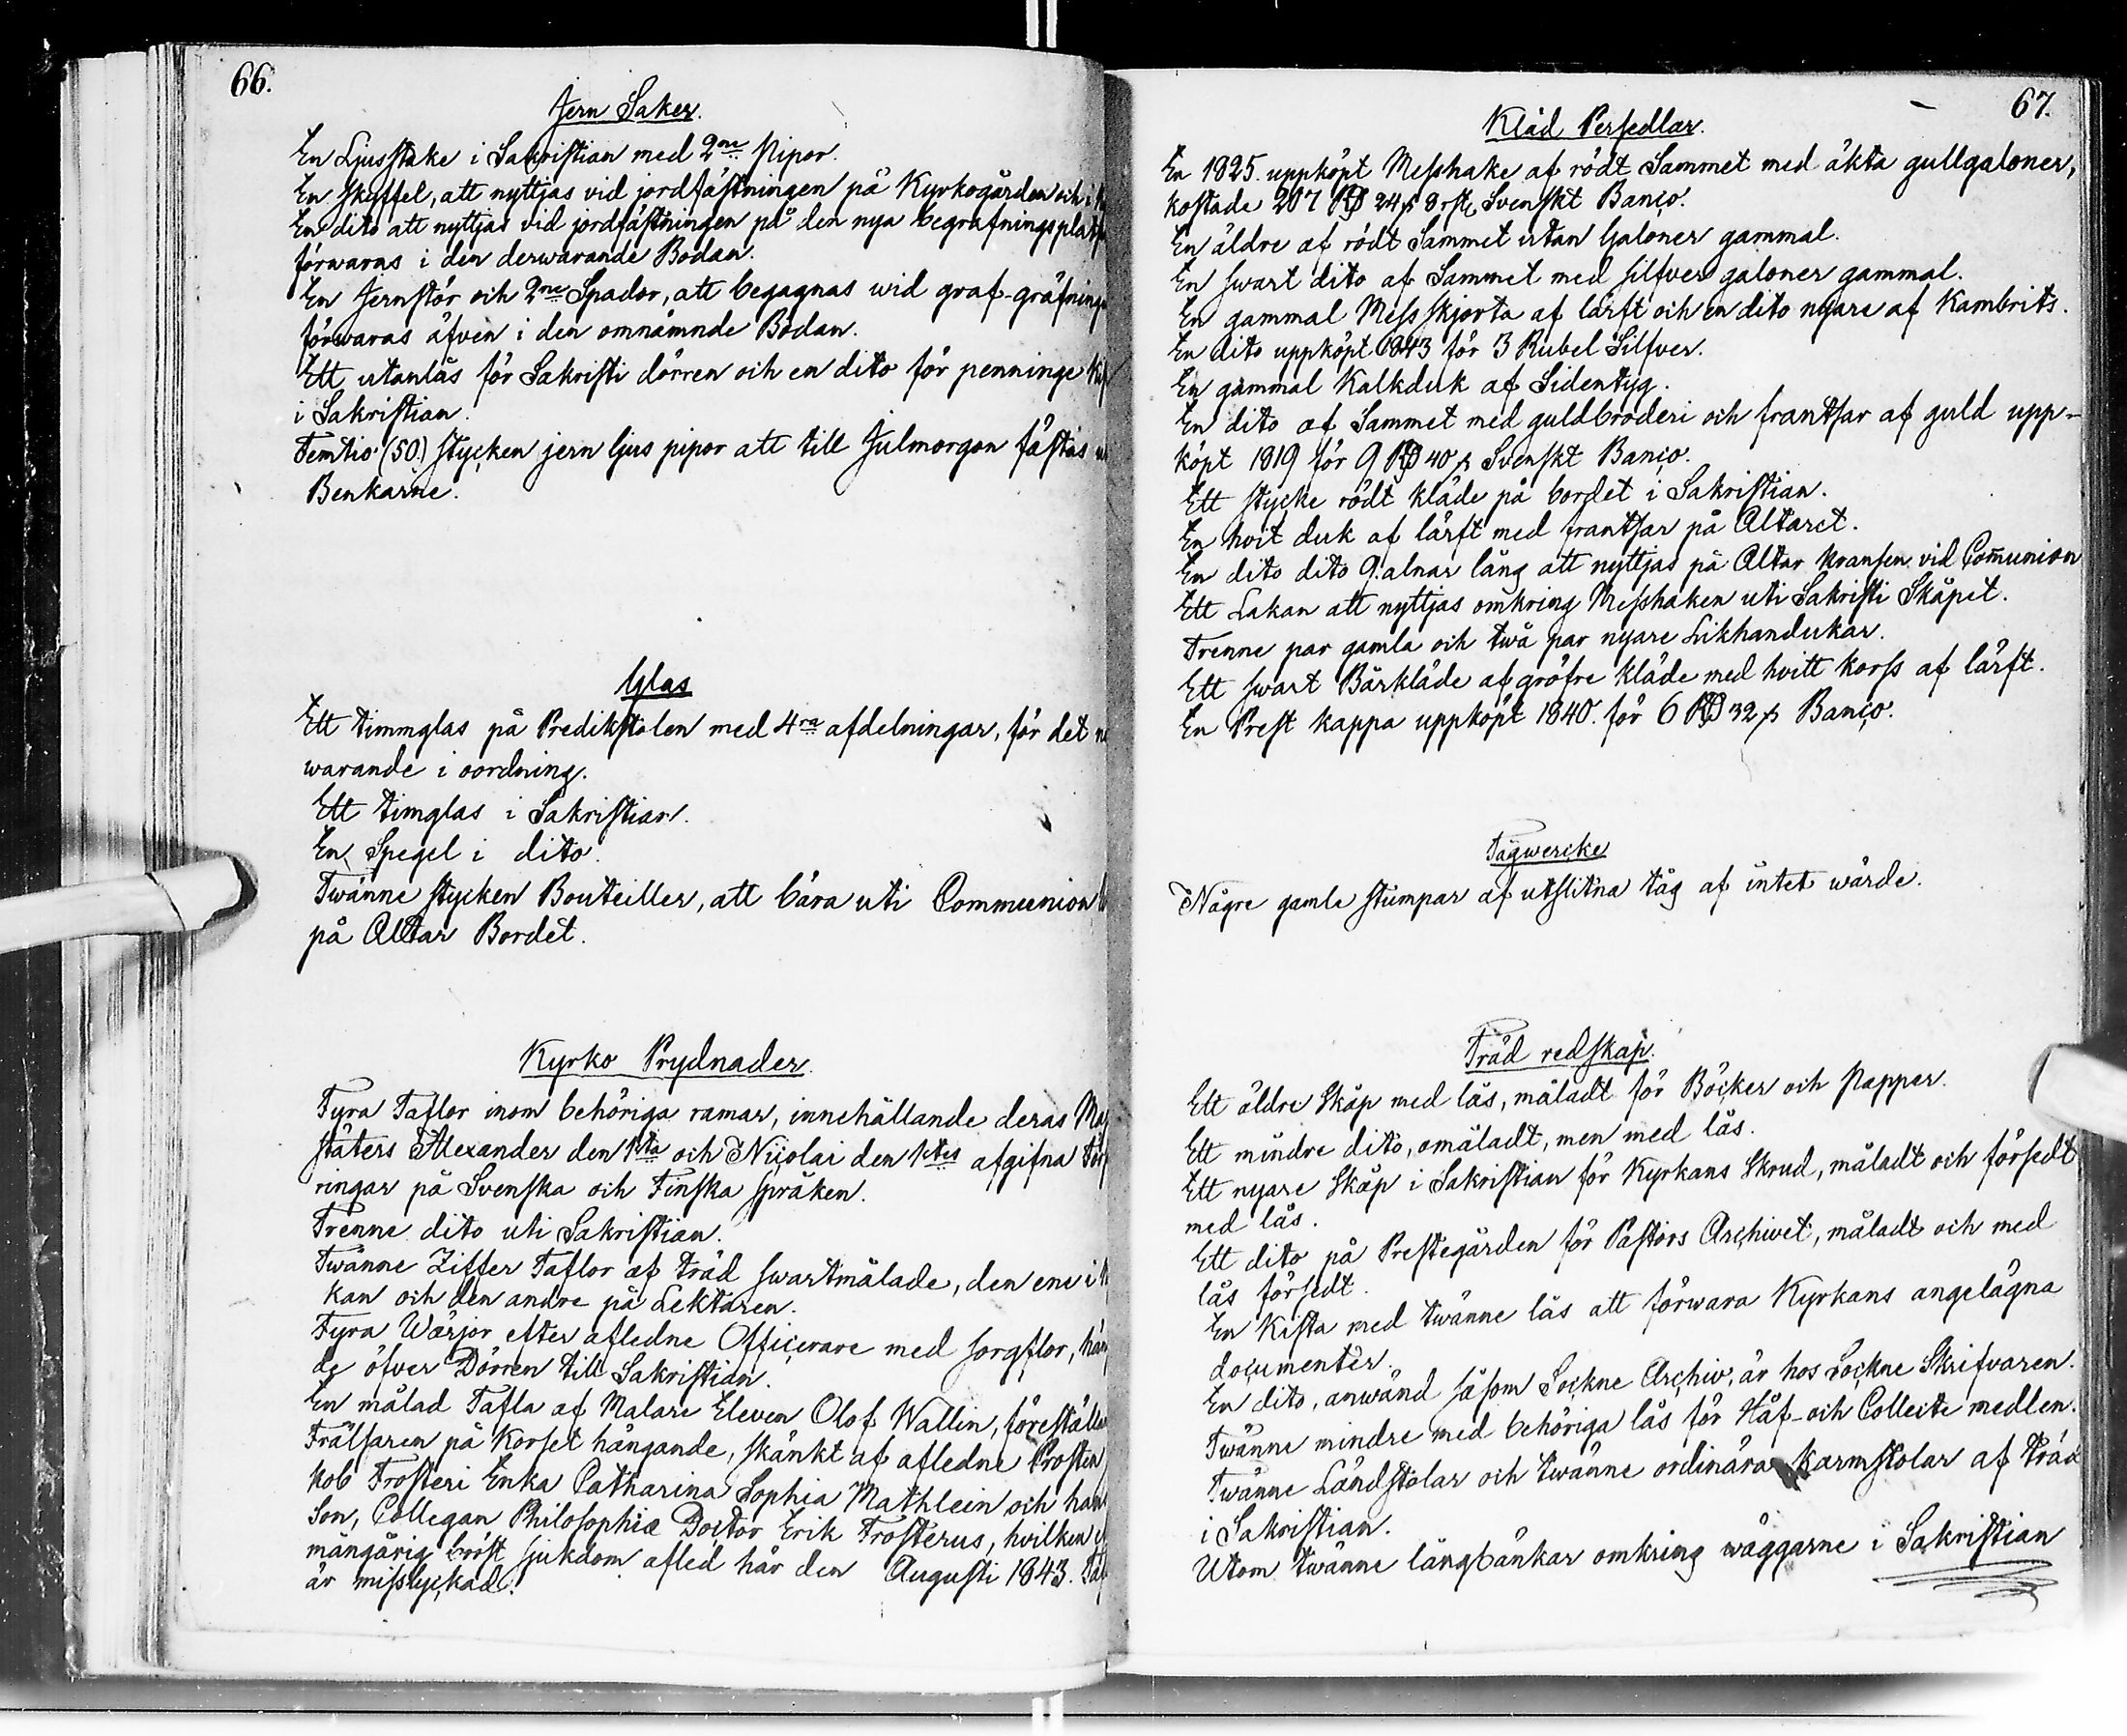 66.
Jern Saker.
En Ljusstake i Sakristian med 2ne Pipor.
En skyffel, att nyttjas vid jordfästningen på Kyrkogården och i
En dito att nyttjas vid jordfästningen på den nya begrafningsplats
förwaras i den derwarande Bodan.
En Jernstör och 2ne Spador, att begagnas wid graf-gräfning
förswaras äfven i den omnämnde Bodan.
Ett utanlås för Sakristi dörren och en dito för penninge
i Sakristian.
Femtio (50) stycken jern ljus pipor att till Julmorgon fästas
Benkarne.
Glas
Ett timmglas på Predikstolen med 4ra afdelningar, för det
warande i oordning.
Ett timglas i Sakristian.
En Spegel i dito.
Twänne stycken Bouteiller, att bära uti Communion
på Altar Bordet.
Kyrko Prydnader.
Fyra Taflor inom behöriga ramar, innehållande deras Maj
stäters Alexander den 1sta och Nicolai den 1stes afgifna för
ringar på Svenska och Finska språken.
Trenne dito uti Sakristian.
Twänne Ziffer Taflor af träd swartmålade, den ene i
kan och den andre på Lektaren.
Fyra Wärjor efter afledne Officerare med sorgflor, hän
de öfver Dörren till Sakristian.
En målad Tafla af Malare Eleven Olof Wallin, föreställ
Frälsaren på Korset hängande, skänkt af afledne Prosten
kob Frosteri Enka Catharina Sophia Mathlein och han
Son, Collegan Philosophiæ Doctor Erik Frosterus, hvilken
mångårig bröst sjukdom afled här den Augusti 1843. Taf
är misslyckad.
67.
Kläd Persedlar.
En 1825. uppköpt Messhake af rödt Sammet med äkta gullgaloner,
kostade 207 RD 24 ß 8 rst. Svenskt Banco.
En äldre af rödt Sammet utan Galoner gammal.
En swart dito af Sammet med silfver galoner gammal.
En gammal Mess skjorta af lärft och en dito nyare af Kambrits.
En dito uppköpt 1843 för 3 Rubel Silfver.
En gammal Kalkduk af Sidentyg.
En dito af Sammet med guldbroderi och frantsar af guld upp-
köpt 1819 för 9 RD 40 ß Svenskt Banco.
Ett stycke rödt kläde på bordet i Sakristian.
En hvit duk af lärft med frantsar på Altaret.
En dito dito 9. alnar lång att nyttjas på Altar kransen vid Com̅union
Ett Lakan att nyttjas omkring Messhaken uti Sakristi Skåpet.
Trenne par gamla och twå par nyare Likhandukar.
Ett swart Bårkläde af gröfre kläde med hvitt korss af lärft.
En Prest kappa uppköpt 1840. för 6 RD 32 ß Banco.
Tågwercke
Någre gamle stumpar af utslitna tåg af intet wärde.
Träd redskap.
Ett äldre Skåp med lås, måladt för Böcker och Papper.
Ett mindre dito, omåladt, men med lås.
Ett nyare Skåp i Sakristian för Kyrkans Skrud, måladt och försedt
med lås.
Ett dito på Prestegården för Pastors Archivet, måladt och med
lås försedt.
En Kista med twänne lås att förwara Kyrkans angelägna
documenter.
En dito, anwänd såsom Sockne Archiv, är hos Sockne Skrifvaren.
Twänne mindre med behöriga lås för Håf- och Collecte medlen.
Twänne Ländstolar och twänne ordinära karmstolar af träd
i Sakristian.
Utom twänne långbänkar omkring wäggarne i Sakristian